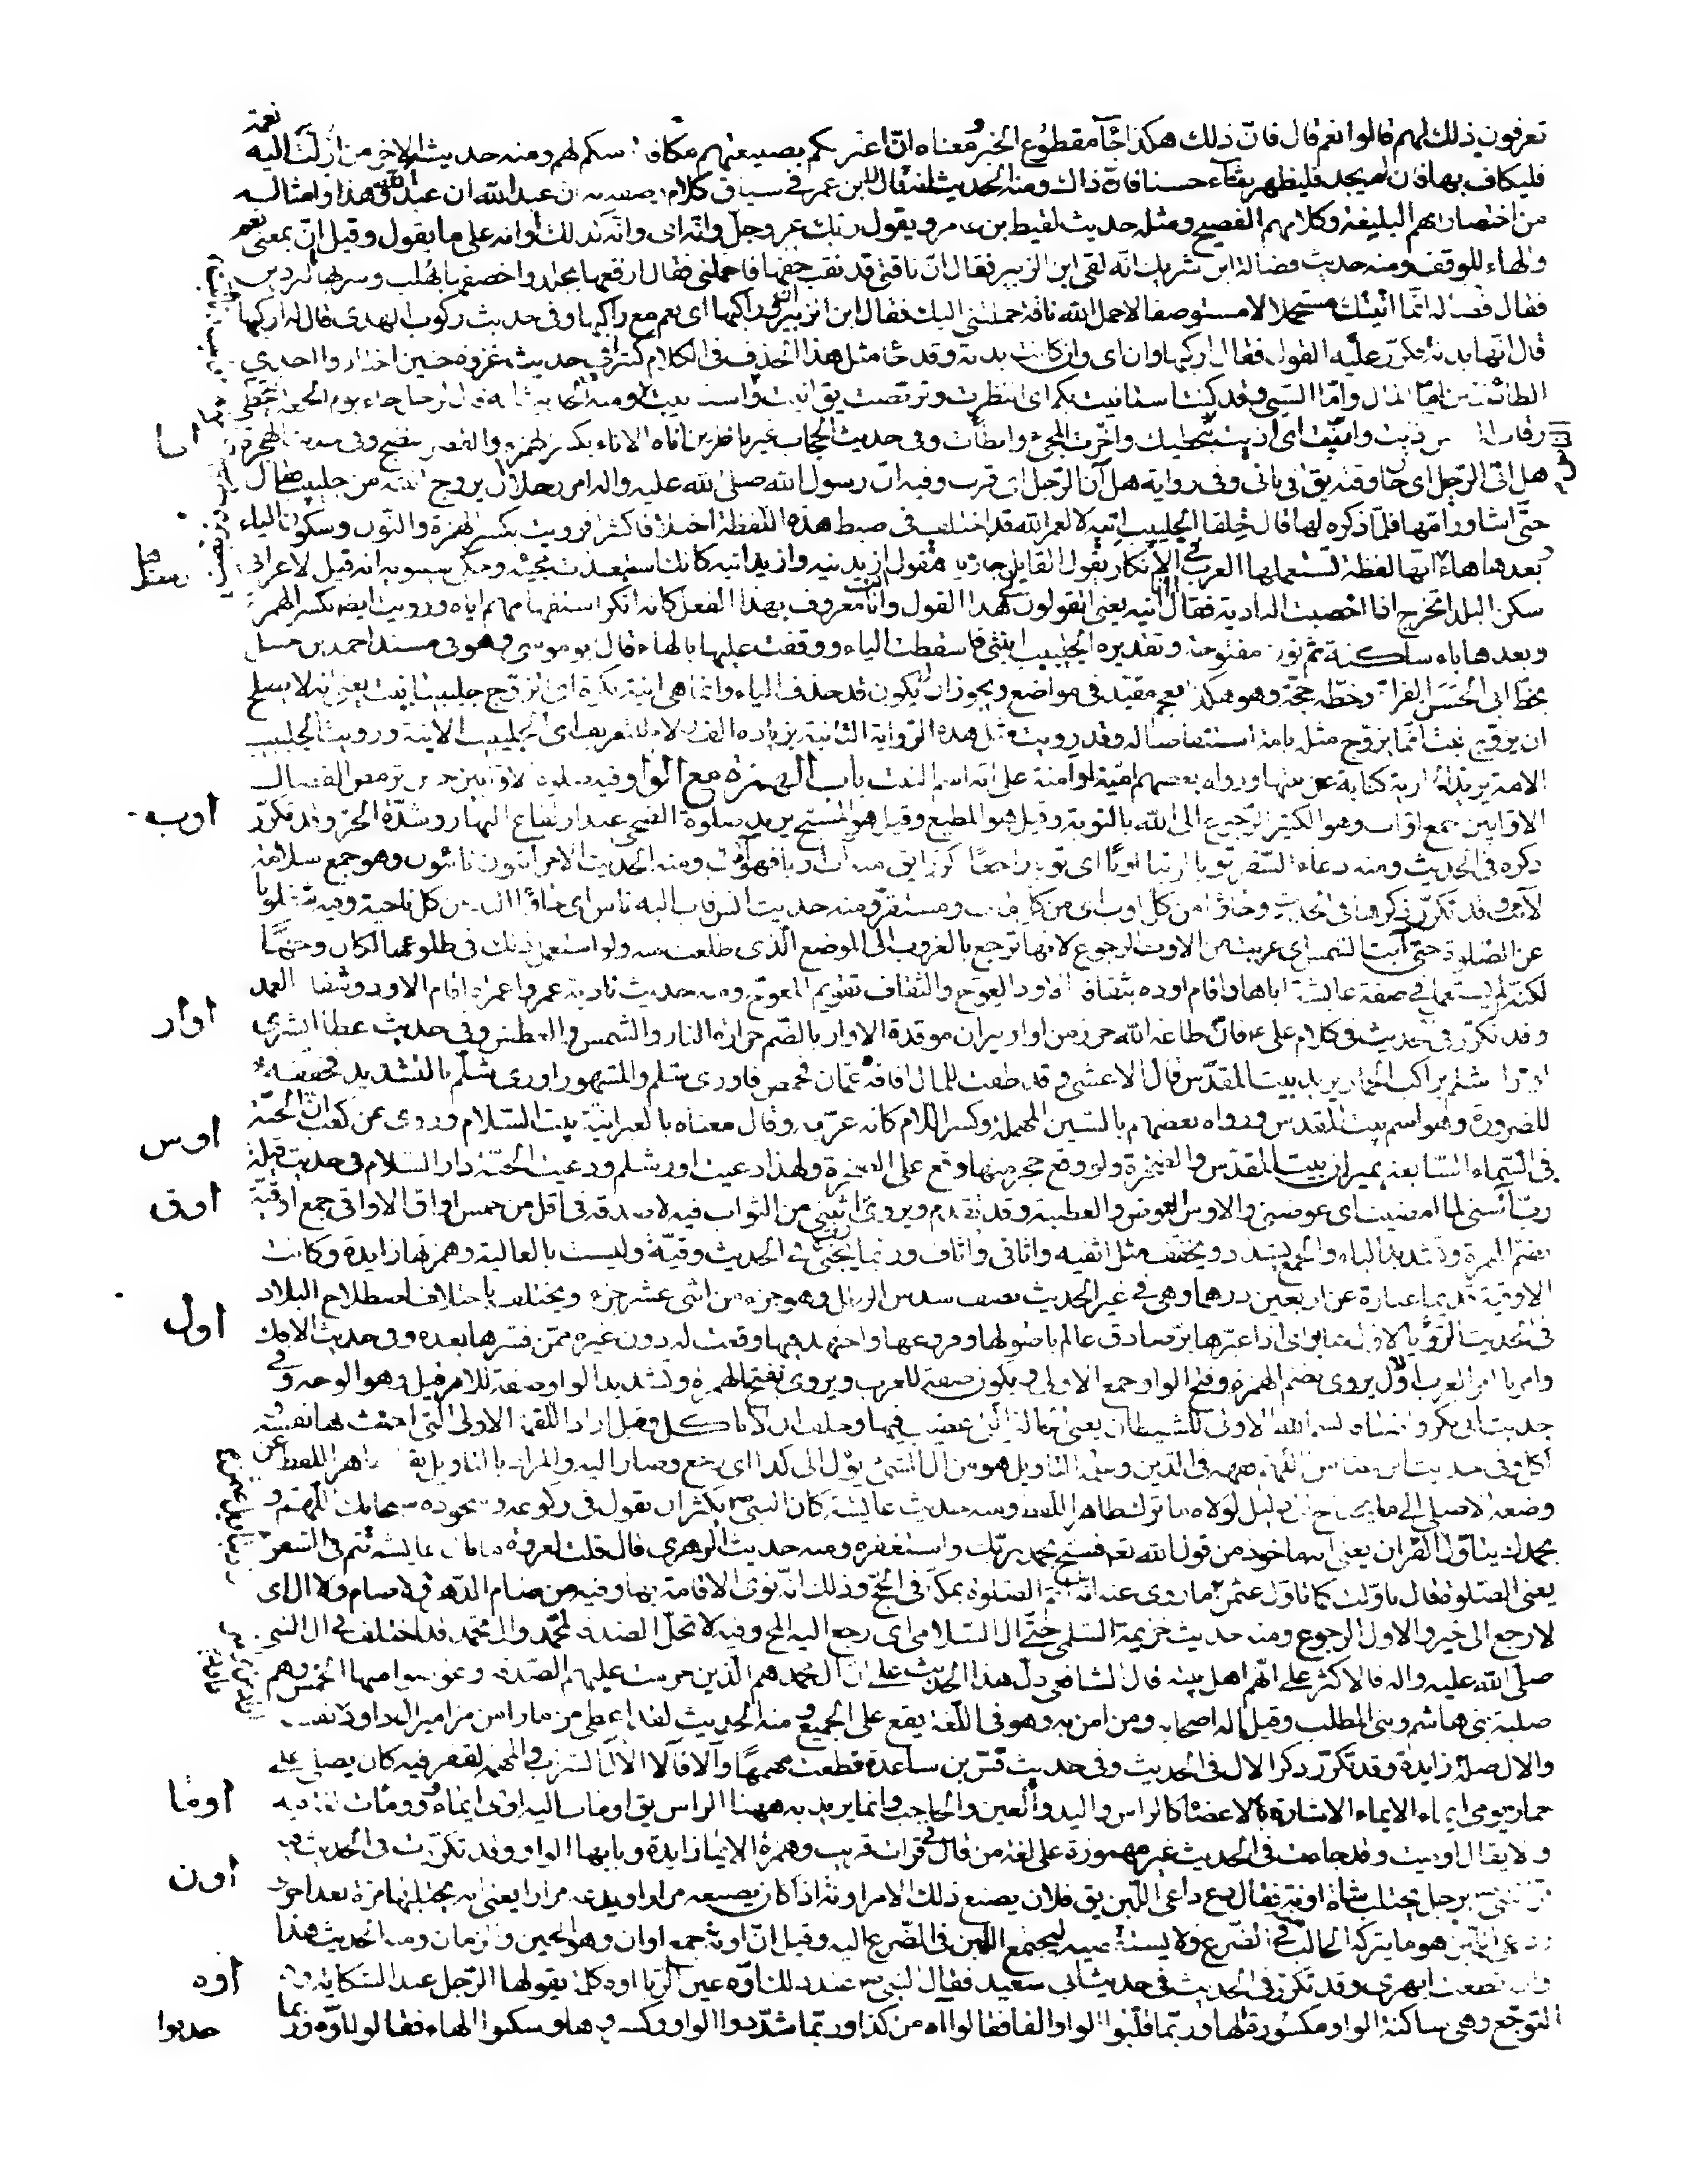 تعرفون ذلك لهم قالوا نعم قال فان ذلك هكذا جاء مقطوع الخبر ومعناه ان اعترافكم بصنيعهم مكافاة منكم لهم ومنه حديثه الاخر من ازلت اليه نعمة
فليكاف بها فان لم يجد فليظهر ثناء حسنا فان ذاك ومنه الحديث انه قال لابن عمر في سياق كلام وصفه به ان عبد الله ان عبد الله وهذا وامثاله
من اختصاراتهم البليغة وكلامهم الفصيح ومثله حديث لقيط بن عامر ويقول ربك عز وجل وانه اى وانه كذلك او انه على ما يقول وقيل ان بمعنى نعم
والهاء للوقف ومنه حديث فضالة ابن شريك انه لقى ابن الزبير فقال ان ناقتى قد نقب خفها فاحملنى فقال ارقعها بجلد واخصفها بهلب وسر بها البردين
فقال فضالة انما اتيتك مستحملا لا مستوصفا لا حمل الله ناقة حملتنى اليك فقال ابن الزبير ان وراكبها اى نعم مع راكبها وفى حديث ركوب الهدى قال له اركبها
قال انها بدنة فكرر عليه القول فقال اركبها وان اى وان كانت بدنة وقد جاء مثل هذا الحذف فى الكلام كثيرا فى حديث غزوة حنين اختاروا احدى
الطائفتين اما المال واما السبى وقد كنت استانيت بكم اى انتظرت وتربصت يق انيت وانيت وتانيت واستانيت ومنه الحديث انه قال لرجل جاء يوم الجمعة يتخطى
رقاب الناس اذيت وانيت اى اذيت بتخطيك واخرت المجئ وابطات وفى حديث الحجاب غير ناظرين اناه الاناء بكسر الهمزة والقصر النضج وفى حديث الهجرة
هل انى الرحيل اى حان وقته يق انى يانى وفى رواية هل آن الرحيل اى قرب وفيه ان رسول الله صلى الله عليه واله امر رجلا ان يزوج ابنته من جليبيب فقال
حتى اشاور امها فلما ذكره لها قالت حلقا الجليبيب انيه لا لعمر الله قد اختلف فى ضبط هذه اللفظة اختلافا كثيرا فرويت بكسر الهمزة والنون وسكون الياء
وبعدها هاء انها لفظة تستعملها العرب فى الانكار يقول القايل جاء زيد فتقول ازيدنيه وازيد انيه كانك استبعدت مجيئه وحكى سيبويه انه قيل لاعرابى
سكن البلد اتخرج اذا اخصبت البادية فقال انا انيه يعنى اتقولون لى هذا القول وانا معروف بهذا الفعل كانه انكر استفهامهم اياه ورويت ايضا بكسر الهمزة
وبعدها باء ساكنة ثم نون مفتوحة وتقديره الجليبيب ابنتى فاسقطت الياء ووقفت عليها بالهاء قال ابو موسى وهو فى مسند احمد بن حنبل
بخط ابى الحسن الفراء وخطه حجة وهو هكذا معجم مقيد فى مواضع ويجوز ان لا يكون قد حذف الياء وانما هى ابنة نكرة اى اتزوج جليبيبا ببنت يعنى انه لا يصلح
ان يزوج ببنت انما يزوج مثله بامة استنقاصا له وقد رويت مثل هذه الرواية الثانية بزيادة الف ولام للتعريف اى الجليبيب الابنة ورويت الجليبيب
الامة يريد الجارية كناية عن بنتها ورواه بعضهم امية او امنة على انه اسم البنت باب الهمزة مع الواو فيه صلوة الاوابين حين ترمض الفصال
الاوابين جمع اواب وهو الكثير الرجوع الى الله بالتوبة وقيل هو المطيع وقيل هو المسبح يريد صلوة الضحى عند ارتفاع النهار وشدة الحر وقد تكرر
ذكره فى الحديث ومنه دعاء السفر توبا لربنا اوبا اى توبا راجعا مكررا يق منه اب اوبا فهو آئب ومنه الحديث الاخر آئبون تائبون وهو جمع سلامة
لآئب وقد تكرر ذكرها فى الحديث وجاؤا من كل اوب اى من كل مآب ومستقر ومنه حديث انس فاب اليه ناس اى جاؤا اليه من كل ناحية وفيه شغلونا
عن الصلوة حتى آبت الشمس اى غربت من الاوب الرجوع لانها ترجع بالغروب الى الموضع الذى طلعت منه ولو استعمل ذلك فى طلوعها لكان وجها
لكنه لم يستعمل فى صفة عايشة اباها واقام اوده بثقافه الاود العوج والثقاف تقويم المعوج ومنه حديث نادبة عمر وا عمراه اقام الاود وشفا العمد
وقد تكرر فى الحديث فى كلام على ع فان طاعة الله حرز من اوار نيران موقدة الاوار بالضم حرارة النار والشمس والعطش وفى حديث عطا ابشرى
اورى شلم براكب الحمار يريد بيت المقدس قال الاعشى وقد طفت للمال افاقه عمان فحمص فاورى شلم والمشهور اورى شلم بالتشديد فخففه
للضرورة وهو اسم بيت المقدس ورواه بعضهم بالسين المهملة وكسر اللام كانه عربه وقال معناه بالعبرانية بيت السلام وروى عن كعب ان الجنة
فى السماء السابعة بميزان بيت المقدس والصخرة ولو وقع حجر منها وقع على الصخرة ولهذا دعيت اورشلم ودعيت الجنة دار السلام فى حديث قيلة
رب آسنى لما امضيت اى عوضنى والاوس العوض والعطية وقد تقدم ويروى اثبنى من الثواب فيه لا صدقة فى اقل من خمس اواق الاواقى جمع اوقية
بضم الهمزة وتشديد الياء والجمع يشدد ويخفف مثل اثفية واثافى واثاف وربما يجئ فى الحديث وقية وليست بالعالية وهمزتها زايدة وكانت
الاوقية قديما عبارة عن اربعين درهما وهى فى غير الحديث نصف سدس الرطل وهو جزء من اثنى عشر جزء ويختلف باختلاف اصطلاح البلاد
فى الحديث الرؤيا لاول عابر اى اذا عبرها بر صادق عالم باصولها وفروعها واجتهد فيها وقعت له دون غيره ممن فسرها بعده وفى حديث الافك
وامرنا امر العرب الاول يروى بضم الهمزة وفتح الواو جمع الاولى ويكون صفة للعرب ويروى بفتح الهمزة وتشديد الواو صفة للامر قيل وهو الوجه وفى
حديث ابى بكر واضيافه بسم الله الاولى للشيطان يعنى الحالة التى غضب فيها وحلف ان لا ياكل وقيل اراد اللقمة الاولى التى احنث بها نفسه
اكل وفى حديث ابن عباس اللهم فقهه فى الدين وعلمه التاويل هو من آل الشئ يؤل الى كذا اى رجع وصار اليه والمراد بالتاويل نقل ظاهر اللفظ عن
وضعه الاصلى الى ما يحتاج الى دليل لولاه ما ترك ظاهر اللفظ ومنه حديث عايشة كان النبى يكثر ان يقول فى ركوعه وسجوده سبحانك اللهم و
بحمدك يتاول القران يعنى انه ماخوذ من قول الله تع فسبح بحمد ربك واستغفره ومنه حديث الزهرى قال قلت لعروة ما بال عايشة تتم فى السفر
يعنى الصلوة فقال تاولت كما تاول عثمن ما روى عنه انه اتم الصلوة بمكة فى الحج وذلك انه نوى الاقامة بها وفيه من صام الدهر فلا صام ولا ال اى
لا رجع الى خير والاول الرجوع ومنه حديث خزيمة السلمى حتى آل السلامى اى رجع اليه المخ وفيه لا تحل الصدقة لمحمد وال محمد قد اختلف فى ال النبى
صلى الله عليه واله فالاكثر على انهم اهل بيته قال الشافعى دل هذا الحديث على ان ال محمد هم الذين حرمت عليهم الصدقة وعوضوا منها الخمس وهم
صلبة بنى هاشم وبنى المطلب وقيل اله اصحابه ومن امن به وهو فى اللغة يقع على الجميع ومنه الحديث لقد اعطى من مارا من مزامير ال داود نفسه
والال صلة زايدة وقد تكرر ذكر الال فى الحديث وفى حديث قس بن ساعدة قطعت مهمها وآلا فآلا الآل السراب والمهمه القفر فيه كان يصلى على
حمار يومى ايماء الايماء الاشارة بالاعضا كالراس واليد والعين والحاجب وانما يريد به ههنا الراس يق اومات اليه اومى ايماء وومات لغة فيه
ولا يقال اوميت وقد جاءت فى الحديث غير مهموزة على لغة من قال فى قرات قريت وهمزة الايما زايدة وبابها الواو وقد تكررت فى الحديث فيه
مر النبى برجل يحتلب شاة اونة فقال دع داعى اللبن يق فلان يصنع ذلك الامر اونة اذا كان يصنعه مرارا ويدعه مرارا يعنى انه يحتلبها مرة بعد اخرى
وداعى اللبن هو ما يتركه الحالب فى الضرع ولا يستقصيه ليجتمع اللبن فى الضرع اليه وقيل ان اونة جمع اوان وهو الحين والزمان ومنه الحديث هذا
اوان قطعت ابهرى وقد تكرر فى الحديث فى حديث ابى سعيد فقال النبى عند ذلك اوه عين الربا اوه كلمة يقولها الرجل عند الشكاية و
التوجع وهى ساكنة الواو مكسورة الهاء وربما قلبوا الواو الفا فقالوا آه من كذا وربما شددوا الواو وكسروها وسكنوا الهاء فقالوا اوه وربما
انا
اوب
اوار
اوس
اوق
اول
اوما
اون
اوه
حذفوا